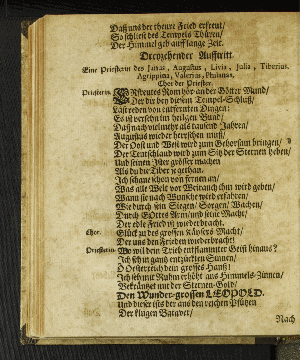 Daß uns der theure Fried erfreut/
So schließ des Tempels Thüren/
Der Himmel geb auff lange Zeit.
Dreyzehender Aufftritt.
Eine Priesterin des Janus, Augustus, Livia, Julia, Tiberius,
Agrippina, Valerius, Phulanus,
Chor der Priester.
Priesterin. ERfreutes Rom hör an der Götter Mund/
Der dir bey diesem Tempel-Schluß/
Last reden von entfernten Dingen:
Es ist versehn im heilgen Bund/
Daß nach vielmehr als tausend Jahren/
Augustus wieder herrschen muß/
Der Ost und West wird zum Gehorsam bringen/
Der Teutschland wird zum Sitz der Sternen heben/
Und seinen Ister grösser machen
Als du die Tiber gethan.
Ich schaue schon von fernen an/
Was alle Welt vor Weirauch ihm wird geben/
Wann sie nach Wunsche wird erfahren/
Wie durch sein Siegen/ Sorgen/ Wachen/
Durch GOttes Arm/ und seine Macht/
Der edle Fried ist wiederbracht.
Chor. Glück zu des grossen Käysers Macht/
Der uns den Frieden wiederbracht!
Priesterin. Wo will dein Trieb entflammter Geist hinaus?
Ich seh in gantz entzückten Sinnen/
O Oesterreich dein grosses Hauß!
Ich seh mit Ruhm erhöht ans Himmels-Zinnen/
Bekräntzet mit der Sternen-Gold/
Den Wunder-grossen LEOPOLD.
Und dieser ists der aus den reichen Pfützen
Der klugen
Nach